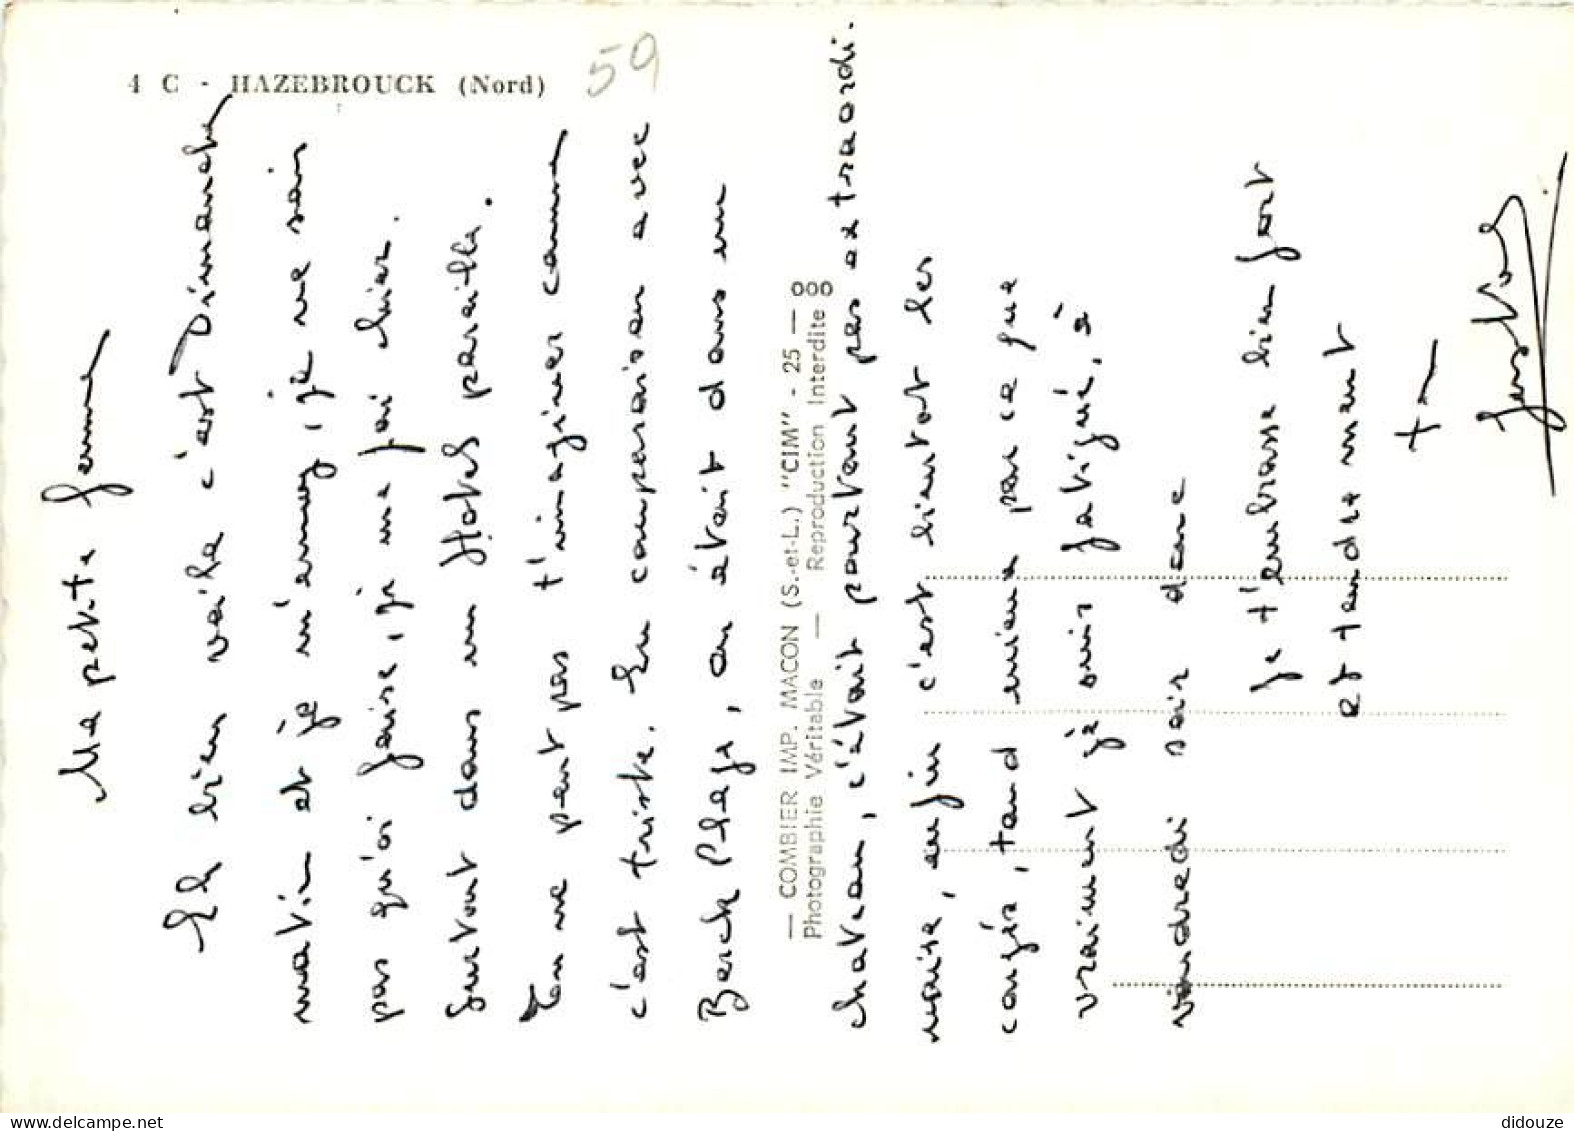 4 C - HAZEBROUCK (Nord)
59
Ma petite femme
Eh bien voila c'est Dimanche
matin et je m'ennuy, je ne sais
pas qu'oi faire, je me fai chier.
Surtout dans un Hotel pareille.
Tu ne peut pas t'imaginer comme
c'est triste. En comparaison avec
Berck Plage, on était dans un
chateau, c'était pourtant pas extraordi.
naire, enfin c'est bientot les
congés, tand mieux parce que
vraiment je suis fatigué, à
vendredi soir donc
Je t'embrasse bien fort
et tendrement
— COMBIER IMP. MACON (S.-et-L.) "CIM" - 25 —
Photographie Véritable — Reproduction Interdite
didouze